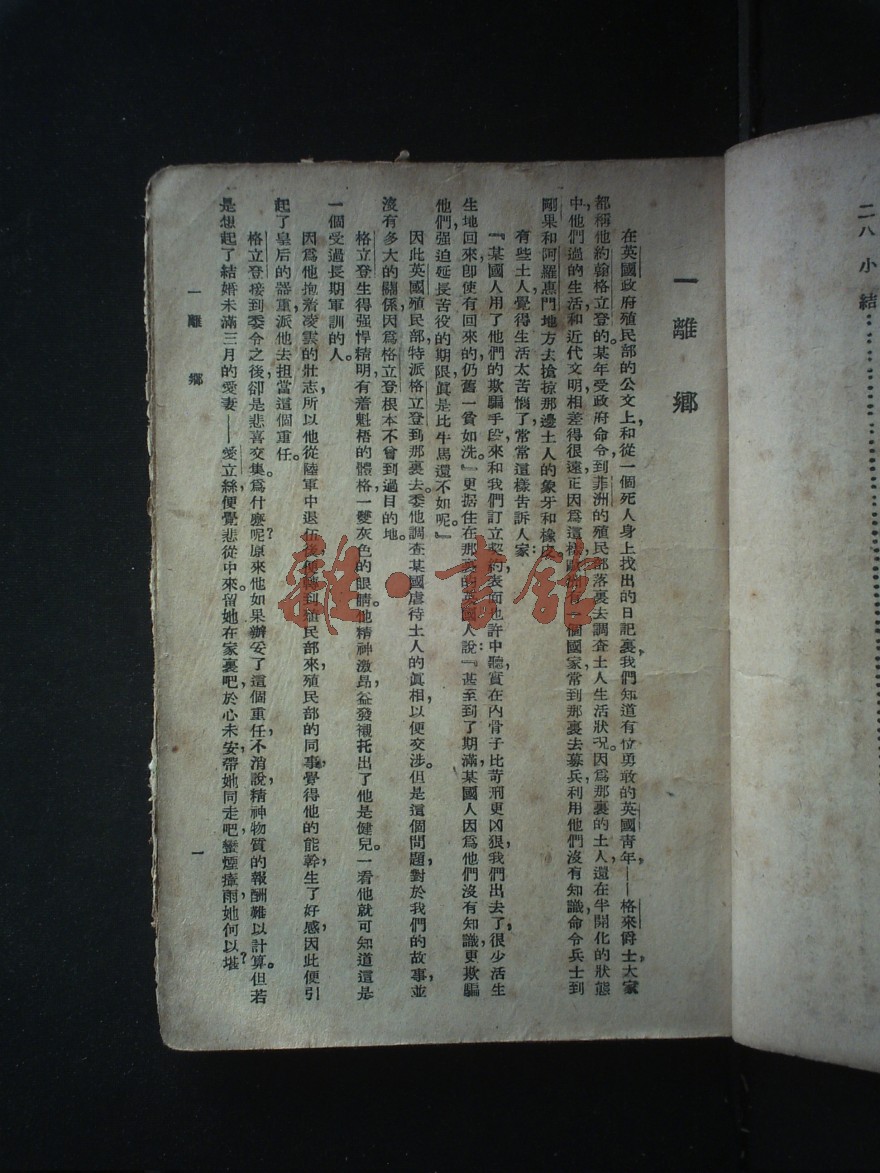 二八 小結……………………
一 離鄉
在英國政府殖民部的公文上，和從一個死人身上找出的日記裏，我們知道有位勇敢的英國青年——格來爵士，大家
都稱他約翰格立登的。某年受政府命令，到菲洲的殖民部落裏去調查土人生活狀況。因爲那裏的土人，還在半開化的狀態
中，他們過的生活，和近代文明相差得很遠，正因爲這樣，歐洲有一個國家，常到那裏去募兵，利用他們沒有知識，命令兵士到
剛果和阿羅惠門地方去搶掠那邊土人的象牙和橡皮。
有些土人，覺得生活太苦惱了，常常這樣告訴人家：
『某國人用了他們的欺騙手段，來和我們訂立契約，表面也許中聽，實在內骨子比苛刑更凶狠，我們出去了，很少活生
生地回來，卽使有回來的，仍舊一貧如洗。』更据住在那裏的英國人說：『甚至到了期滿，某國人因爲他們沒有知識，更欺騙
他們，强迫延長苦役的期限，眞是比牛馬還不如呢。』
因此英國殖民部，特派格立登到那裏去。委他調查某國虐待土人的眞相，以便交涉。但是這個問題，對於我們的故事，並
沒有多大的關係，因爲格立登根本不曾到過目的地。
格立登生得强悍精明，有着魁梧的體格，一雙灰色的眼睛。他精神激昂，益發襯托出了他是健兒。一看他就可知道這是
一個受過長期軍訓的人。
因爲他抱着凌雲的壯志，所以他從陸軍中退伍後，便轉到殖民部來，殖民部的同事，覺得他的能幹，生了好感，因此便引
起了皇后的器重，派他去担當這個重任。
格立登接到委令之後，卻是悲喜交集。爲什麼呢？原來他如果辦妥了這個重任，不消說，精神物質的報酬難以計算。但若
是想起了結婚未滿三月的愛妻——愛立絲，便覺悲從中來。留她在家裏吧，於心未安，帶她同走吧，蠻煙瘴雨，她何以堪？
一 離 鄉
一
雜·書館